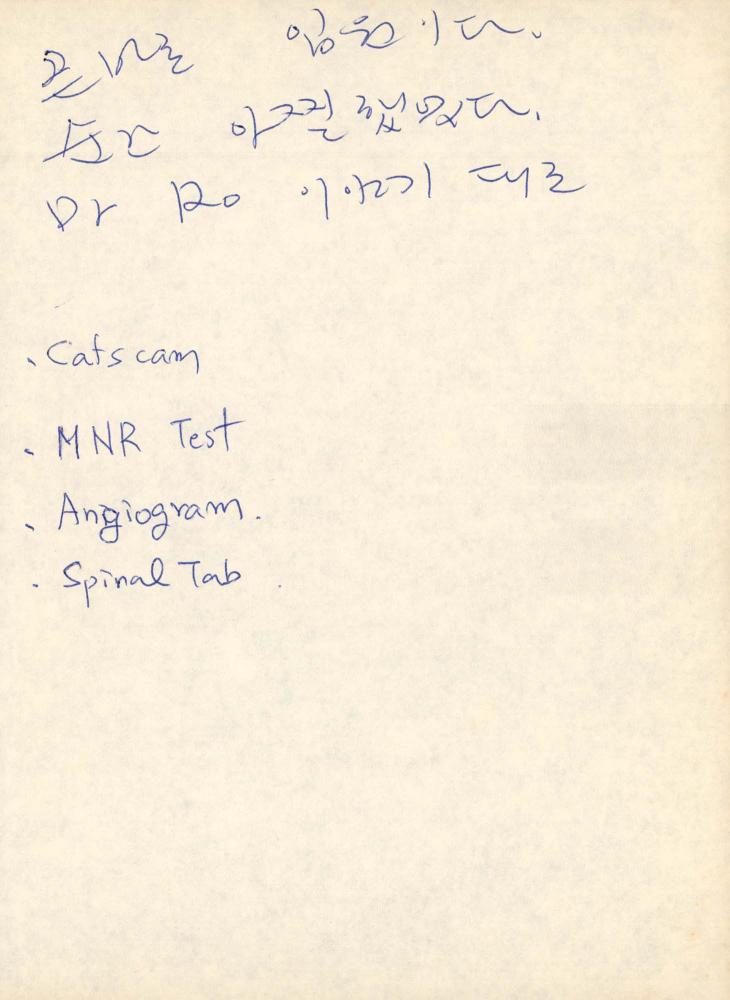 입원이다.
순간 아찔했었다.
Dr Ro 이야기 대로
. Catscam
. MNR Test
. Angiogram.
. Spinal Tab